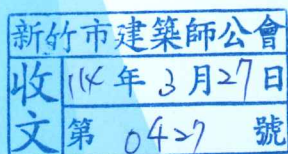 新竹市建築師公會
收文
114年3月27日
第0427號